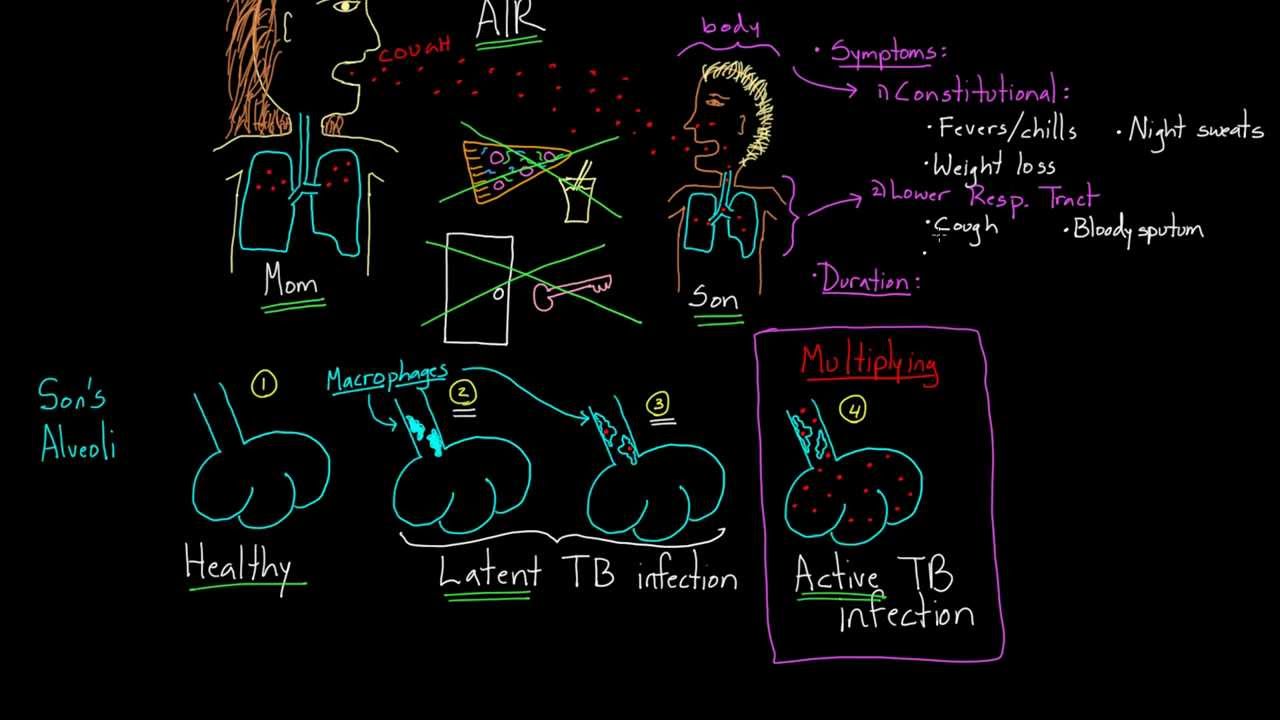 AIR
COUGH
body
Mom
Son
• Symptoms:
1) Constitutional:
• Fevers/chills • Night sweats
• Weight loss
2) Lower Resp. Tract
• Cough • Bloody sputum
•
• Duration:
Son's
Alveoli
1
Macrophages
2
3
Multiplying
4
Healthy
Latent TB infection
Active TB
infection